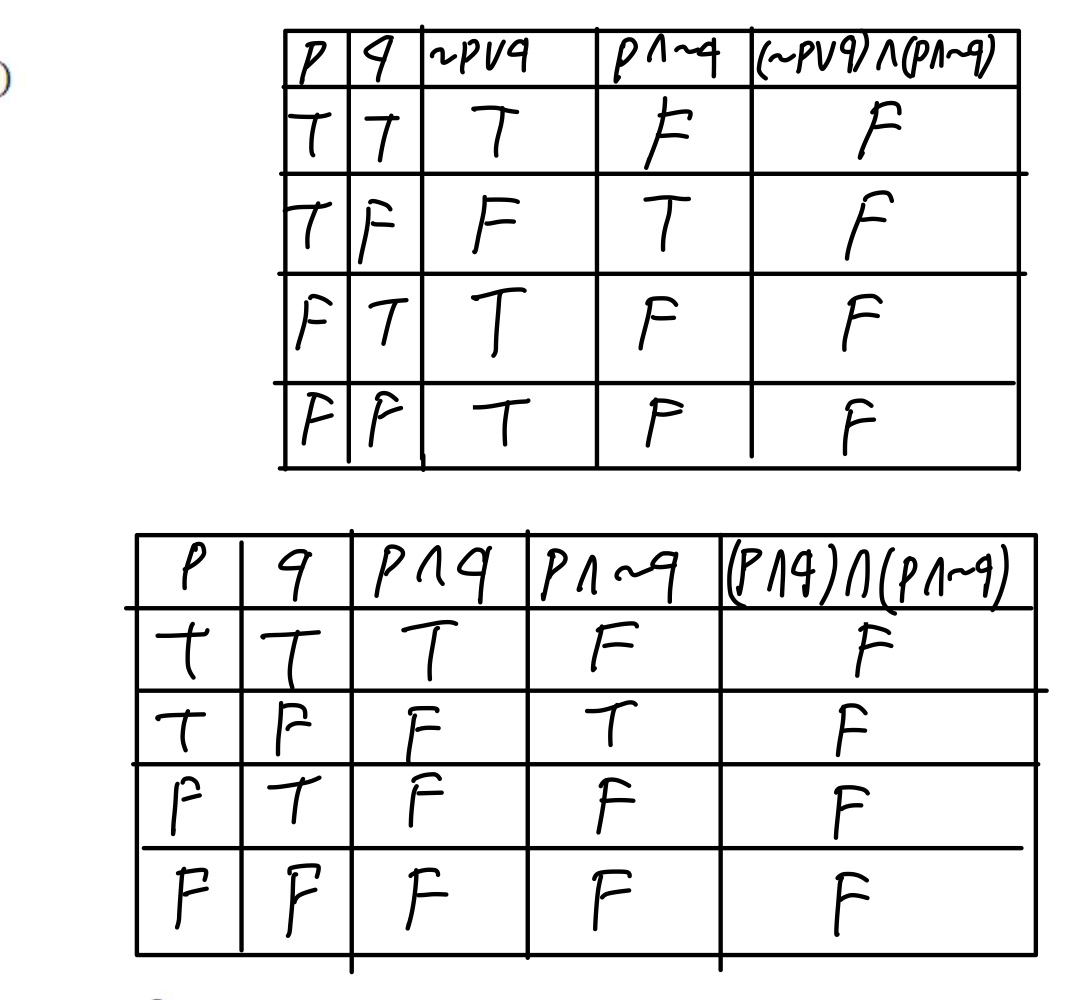 )
p q ~p∨q p∧~q (~p∨q)∧(p∧~q)
T T T F F
T F F T F
F T T F F
F F T F F
p q p∧q p∧~q (p∧q)∧(p∧~q)
T T T F F
T F F T F
F T F F F
F F F F F